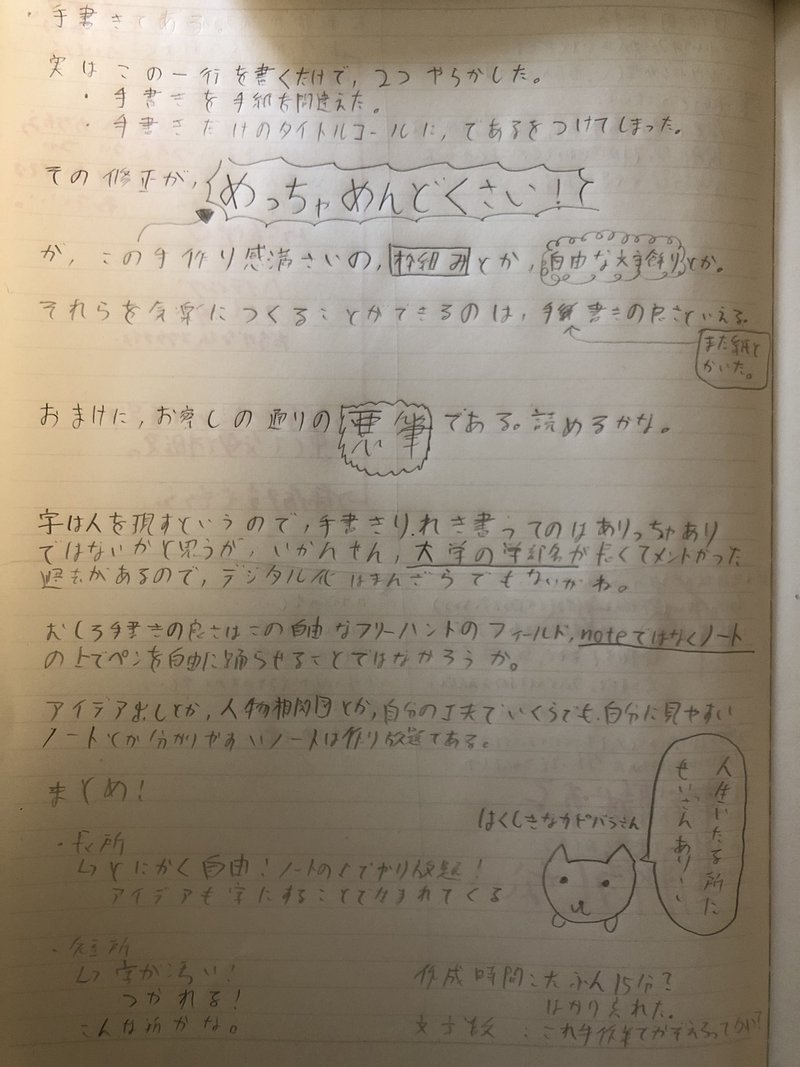 ・手書きである。
実はこの一行を書くだけで、2つやらかした。
・手書きを手紙を間違えた。
・手書きだけのタイトルコールに、であるをつけてしまった。
その修正が、めっちゃめんどくさい！
が、この手作り感満さいの、枠組みとか、自由な文字飾りとか。
それらを気楽につくることができるのは、手紙書きの良さといえる。
また紙と
かいた。
おまけに、お察しの通りの悪筆である。読めるかな。
字は人を現すというので、手書きり れき書ってのはありっちゃあり
ではないかと思うが、いかんせん、大学の学部名が長くてメントかった
過去があるので、デジタル化はまんざらでもないかね。
むしろ手書きの良さはこの自由なフリーハンドのフィールド、noteではなくノート
の上でペンを自由に踊らせることではなかろうか。
アイデア出しとか、人物相関図とか、自分の工夫でいくらでも自分に見やすい
ノートとか分かりやすいノートは作り放題である。
まとめ！
・長所
↳とにかく自由！ノートの上でかり放題！
アイデアも字にすることで かまれてくる
はくしきなカドバラさん
人生いたる所に
せいざんありぃぃ
・短所
↳字が汚い！
つかれる！
こんな所かな。
作成時間：たぶん15分？
はかり忘れた。
文字数：これ手作業でかぞえるって